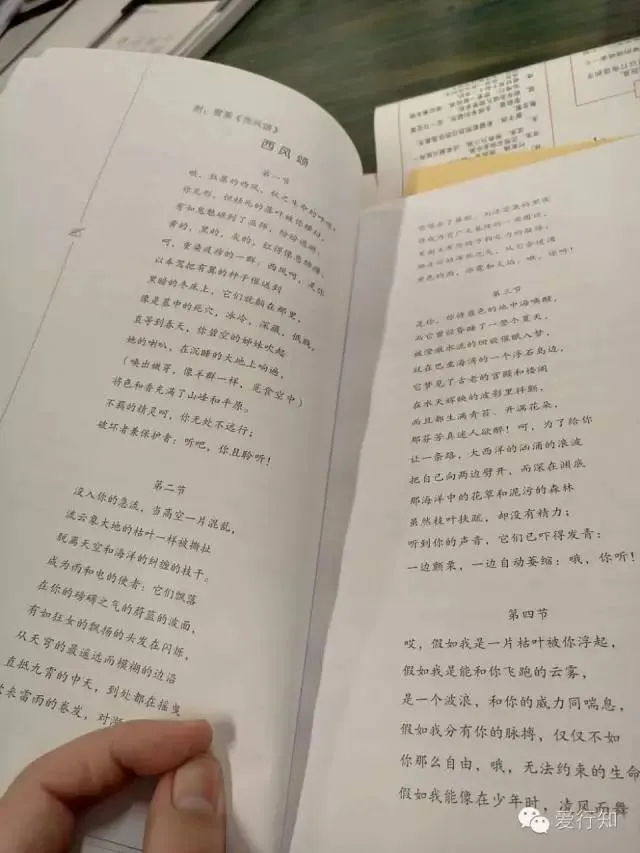 附：雪莱《西风颂》
西风颂
第一节
哦，狂暴的西风，秋之生命的呼吸！
你无形，但枯死的落叶被你横扫，
有如鬼魅碰到了巫师，纷纷逃避：
黄的，黑的，灰的，红得像患肺痨，
呵，重染疫疠的一群：西风呵，是你
以车驾把有翼的种子催送到
黑暗的冬床上，它们就躺在那里，
像是墓中的死穴，冰冷，深藏，低贱，
直等到春天，你碧空的姊妹吹起
她的喇叭，在沉睡的大地上响遍，
（唤出嫩芽，像羊群一样，觅食空中）
将色和香充满了山峰和平原。
不羁的精灵呵，你无处不远行；
破坏者兼保护者：听吧，你且聆听！
第二节
没入你的急流，当高空一片混乱，
流云象大地的枯叶一样被撕扯
脱离天空和海洋的纠缠的枝干。
成为雨和电的使者：它们飘落
在你的磅礴之气的蔚蓝的波面，
有如狂女的飘扬的头发在闪烁，
从天穹的最遥远而模糊的边沿
直抵九霄的中天，到处都在摇曳
来雷雨的卷发，对濒
将成为它广大墓陵的一座圆顶，
里面正有你的万钧之力的凝结；
那是你的浑然之气，从它会迸涌
黑色的雨，冰雹和火焰：哦，你听！
第三节
是你，你将蓝色的地中海唤醒，
而它曾经昏睡了一整个夏天，
被澄澈水流的回旋催眠入梦，
就在巴亚海湾的一个浮石岛边，
它梦见了古老的宫殿和楼阁
在水天辉映的波影里抖颤，
而且都生满青苔、开满花朵，
那芬芳真迷人欲醉！呵，为了给你
让一条路，大西洋的汹涌的浪波
把自己向两边劈开，而深在渊底
那海洋中的花草和泥污的森林
虽然枝叶扶疏，却没有精力；
听到你的声音，它们已吓得发青：
一边颤栗，一边自动萎缩：哦，你听！
第四节
哎，假如我是一片枯叶被你浮起，
假如我是能和你飞跑的云雾，
是一个波浪，和你的威力同喘息，
假如我分有你的脉搏，仅仅不如
你那么自由，哦，无法约束的生命
假如我能像在少年时，凌风而舞
爱行知